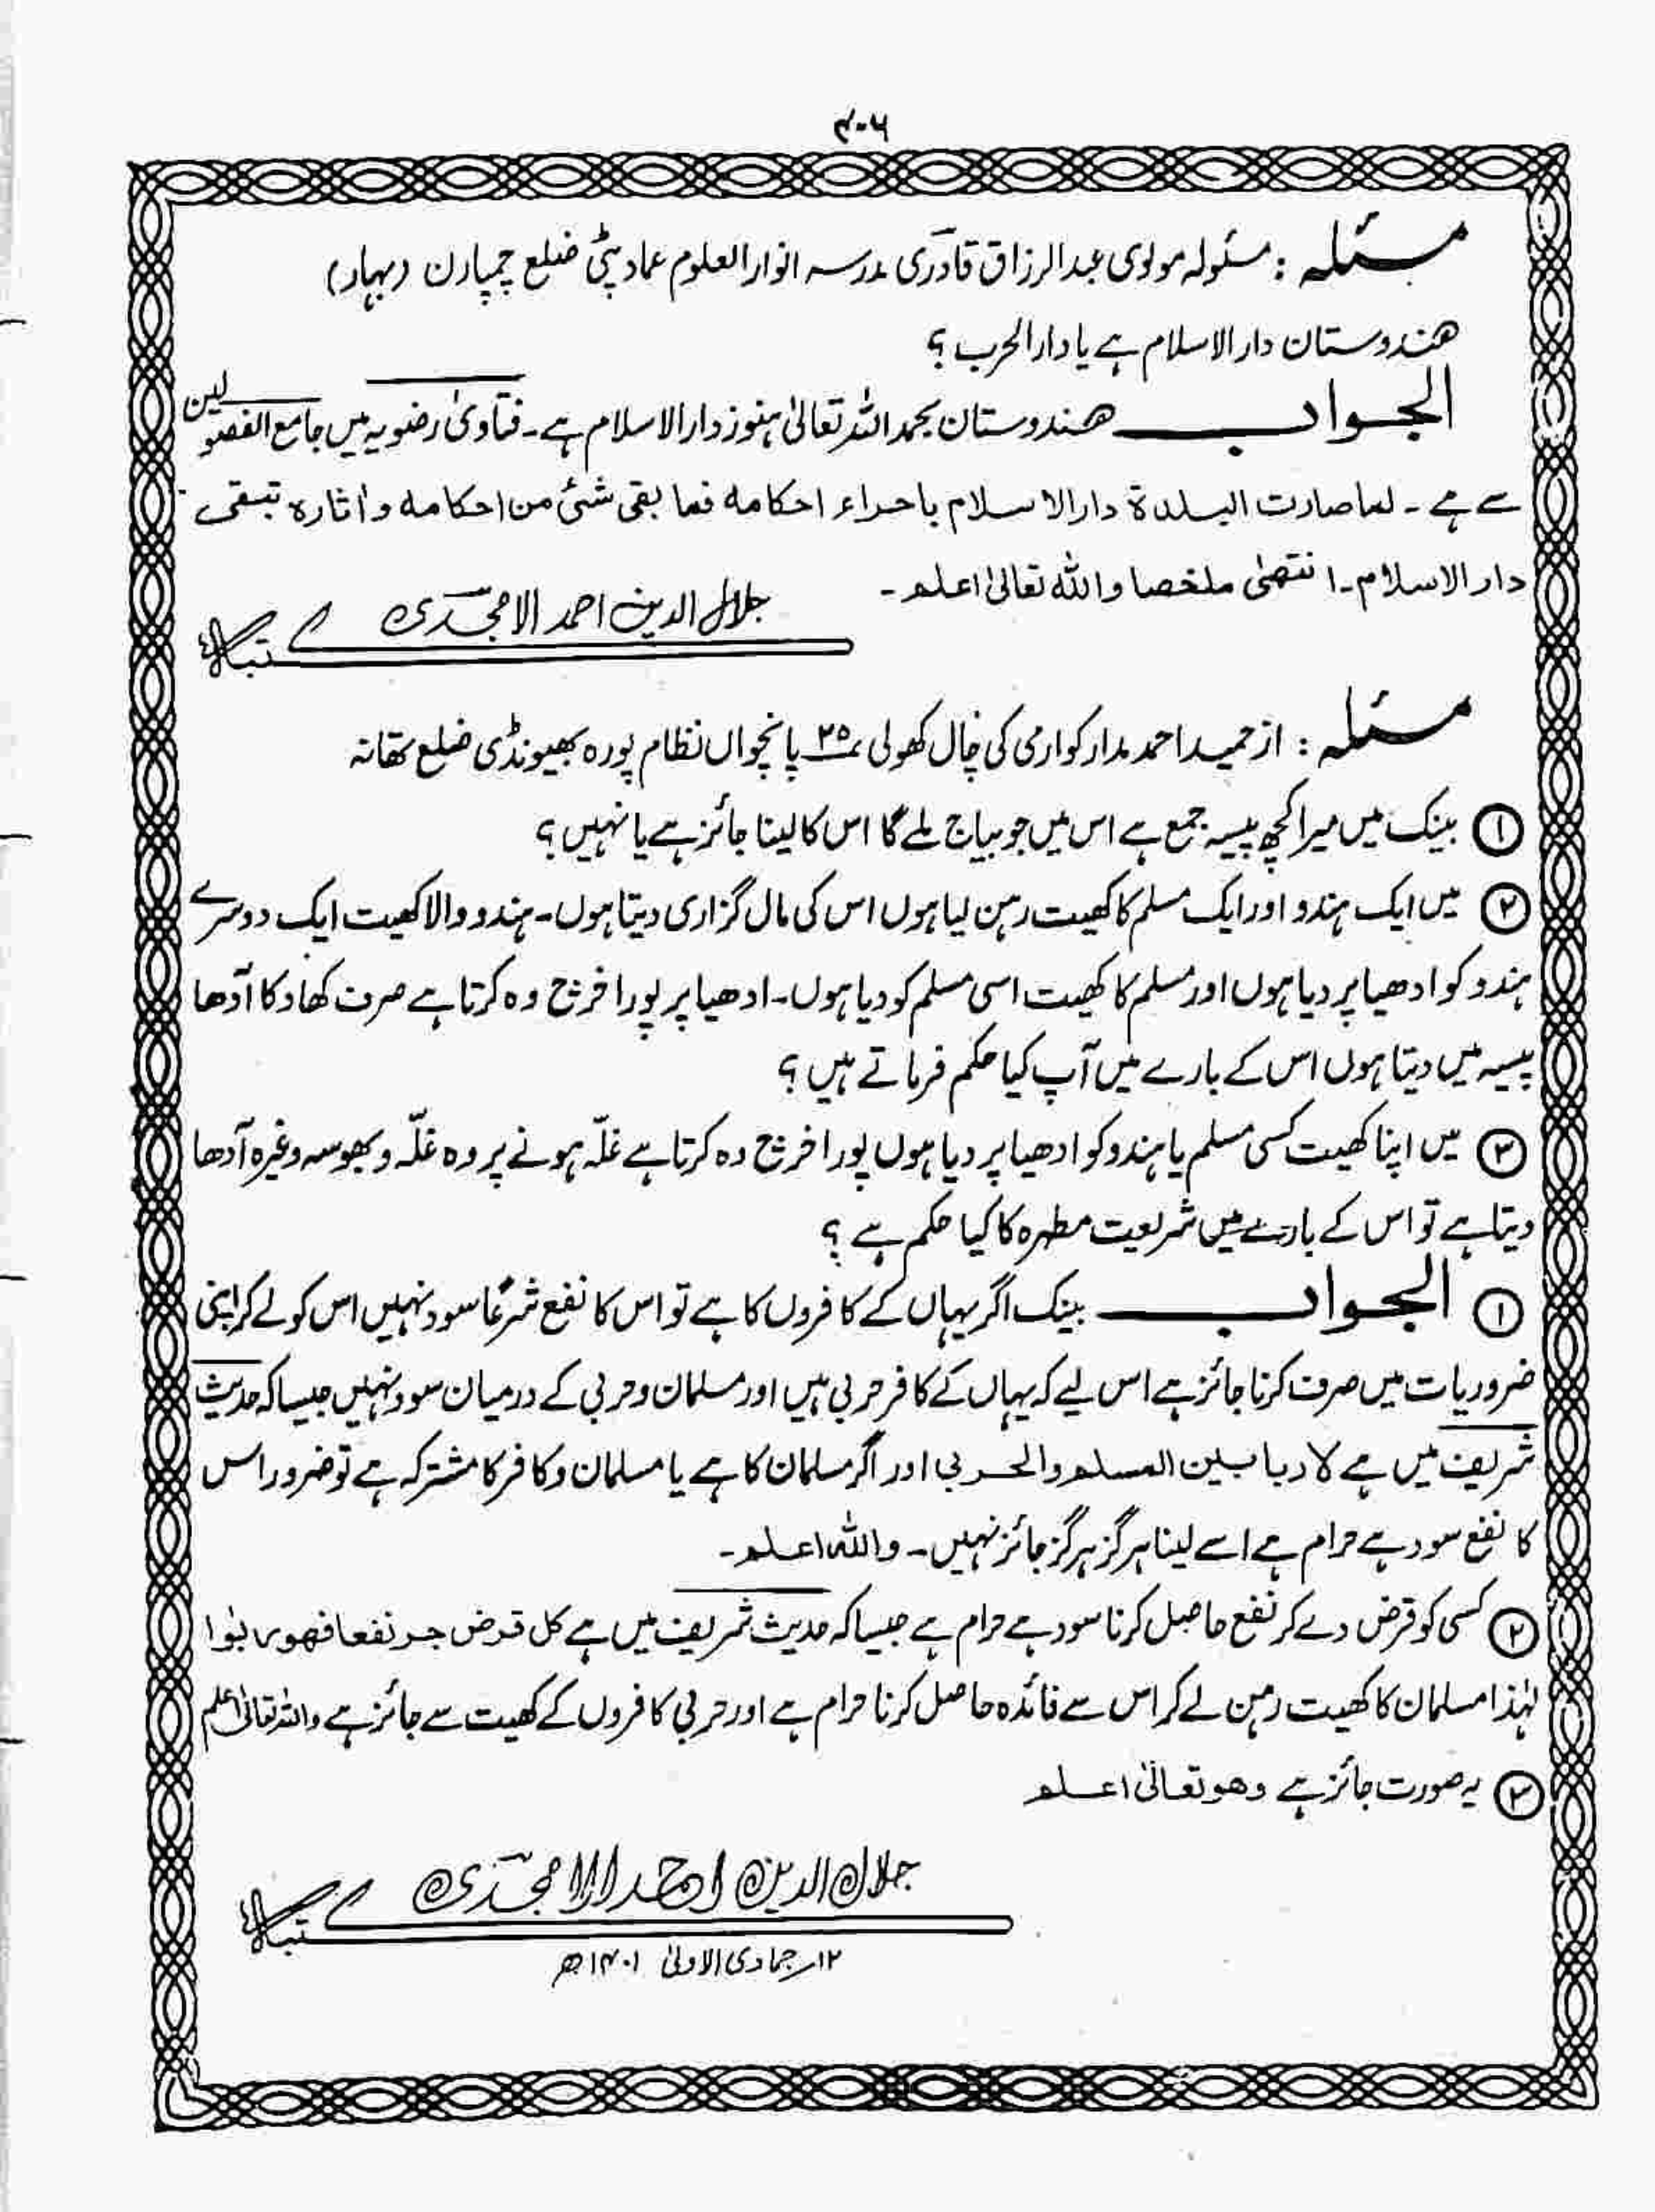 ۴۰۶
مسئلہ : مسئولہ مولوی عبدالرزاق قادری مدرسہ انوارالعلوم عماد پٹی ضلع چمپارن (بہار)
ھندوستان دارالاسلام ہے یا دارالحرب ؟
الجواب ــــ ھندوستان بحمداللہ تعالیٰ ہنوز دارالاسلام ہے۔ فتاویٰ رضویہ میں جامع الفصولین
سے ہے ۔ لما صارت البلدۃ دارالاسلام باجراء احکامہ فما بقی شئ من احکامہ واٰثارہ تبقی
دارالاسلام۔ انتھیٰ ملخصا واللہ تعالیٰ اعلم ۔
جلال الدین احمد الامجدی
کتبہ
مسئلہ : از حمید احمد مدار کوارمی کی چال کھولی نمبر ۲۵ پانچواں نظام پورہ بھیونڈی ضلع تھانہ
① بینک میں میرا کچھ پیسہ جمع ہے اس میں جو بیاج ملے گا اس کا لینا جائز ہے یا نہیں ؟
② میں ایک ہندو اور ایک مسلم کا کھیت رہن لیا ہوں اس کی مال گزاری دیتا ہوں۔ ہندو والا کھیت ایک دوسرے
ہندو کو ادھیا پر دیا ہوں اور مسلم کا کھیت اسی مسلم کو دیا ہوں۔ ادھیا پر پورا خرچ وہ کرتا ہے صرف کھاد کا آدھا
پیسہ میں دیتا ہوں اس کے بارے میں آپ کیا حکم فرماتے ہیں ؟
③ میں اپنا کھیت کسی مسلم یا ہندو کو ادھیا پر دیا ہوں پورا خرچ وہ کرتا ہے غلّہ ہونے پر وہ غلّہ و بھوسہ وغیرہ آدھا
دیتا ہے تو اس کے بارے میں شریعت مطہرہ کا کیا حکم ہے ؟
① الجواب ــــ بینک اگر یہاں کے کافروں کا ہے تو اس کا نفع شرعًا سود نہیں اس کو لے کر اپنی
ضروریات میں صرف کرنا جائز ہے اس لیے کہ یہاں کے کافر حربی ہیں اور مسلمان و حربی کے درمیان سود نہیں جیسا کہ حدیث
شریف میں ہے لا ربا بین المسلم والحربی اور اگر مسلمان کا ہے یا مسلمان و کافر کا مشترکہ ہے تو ضرور اس
کا نفع سود ہے حرام ہے اسے لینا ہرگز ہرگز جائز نہیں۔ واللہ اعلم۔
② کسی کو قرض دے کر نفع حاصل کرنا سود ہے حرام ہے جیسا کہ حدیث شریف میں ہے کل قرض جر نفعا فھو ربٰوا
لہٰذا مسلمان کا کھیت رہن لے کر اس سے فائدہ حاصل کرنا حرام ہے اور حربی کافروں کے کھیت سے جائز ہے واللہ تعالیٰ اعلم
③ یہ صورت جائز ہے وھو تعالیٰ اعلم
جلال الدین احمد الامجدی
کتبہ
۱۲ر جمادی الاولیٰ ۱۴۰۱ھ